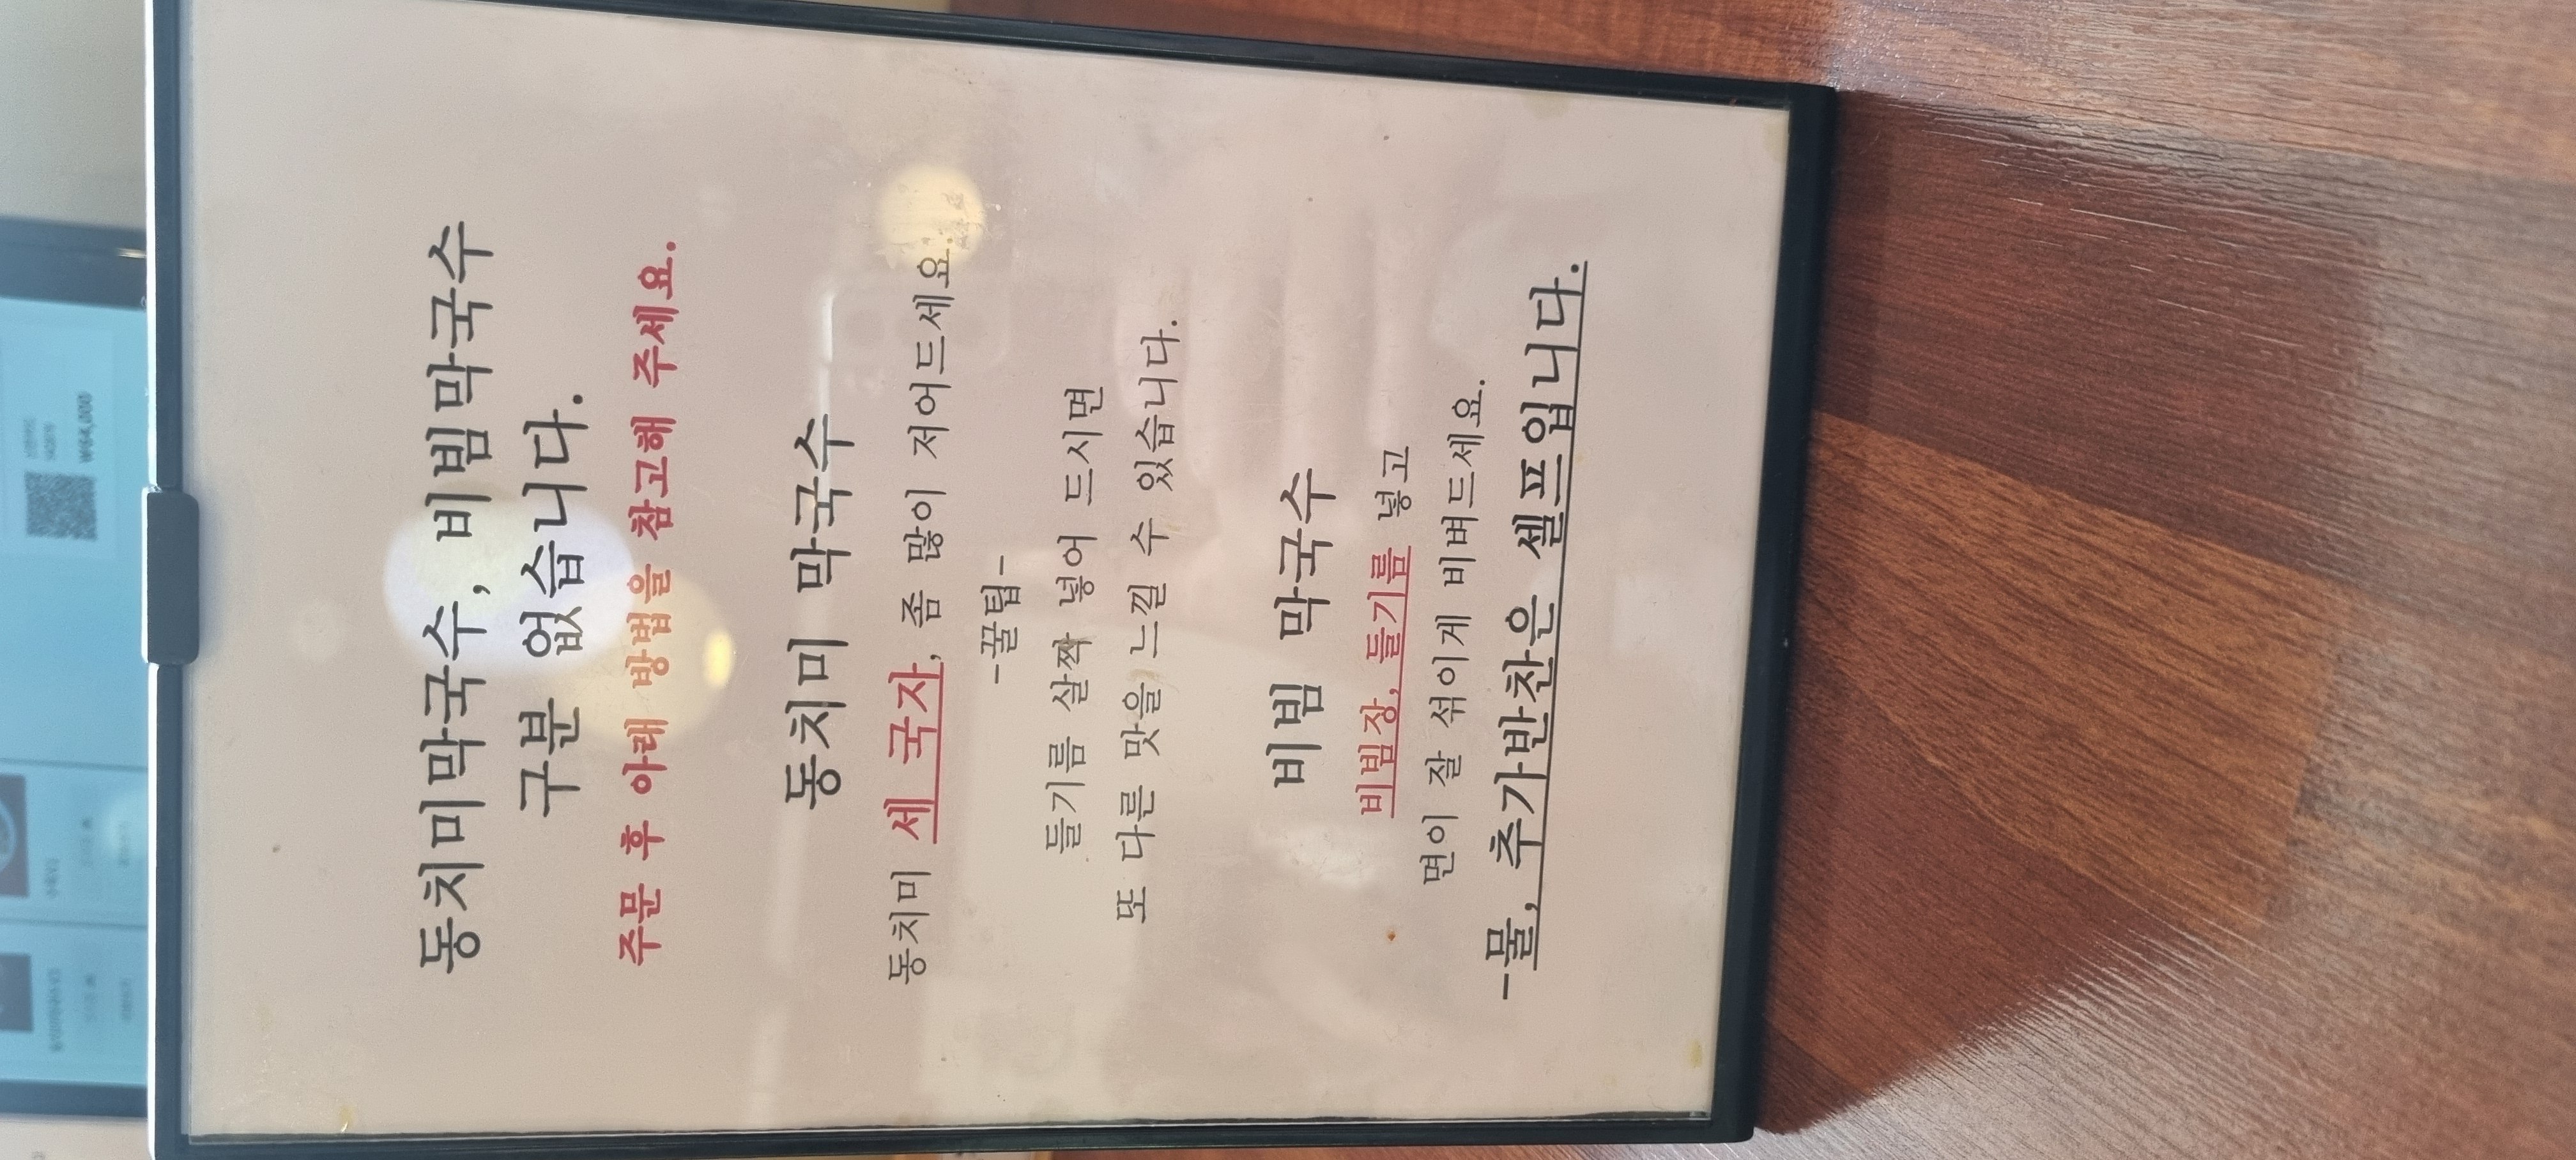 동치미막국수, 비빔막국수
구분 없습니다.
주문 후 아래 방법을 참고해 주세요.
동치미 막국수
동치미 세 국자, 좀 많이 저어드세요.
-꿀팁-
들기름 살짝 넣어 드시면
또 다른 맛을 느낄 수 있습니다.
비빔 막국수
비빔장, 들기름 넣고
면이 잘 섞이게 비벼드세요.
-물, 추가반찬은 셀프입니다.
₩64,000